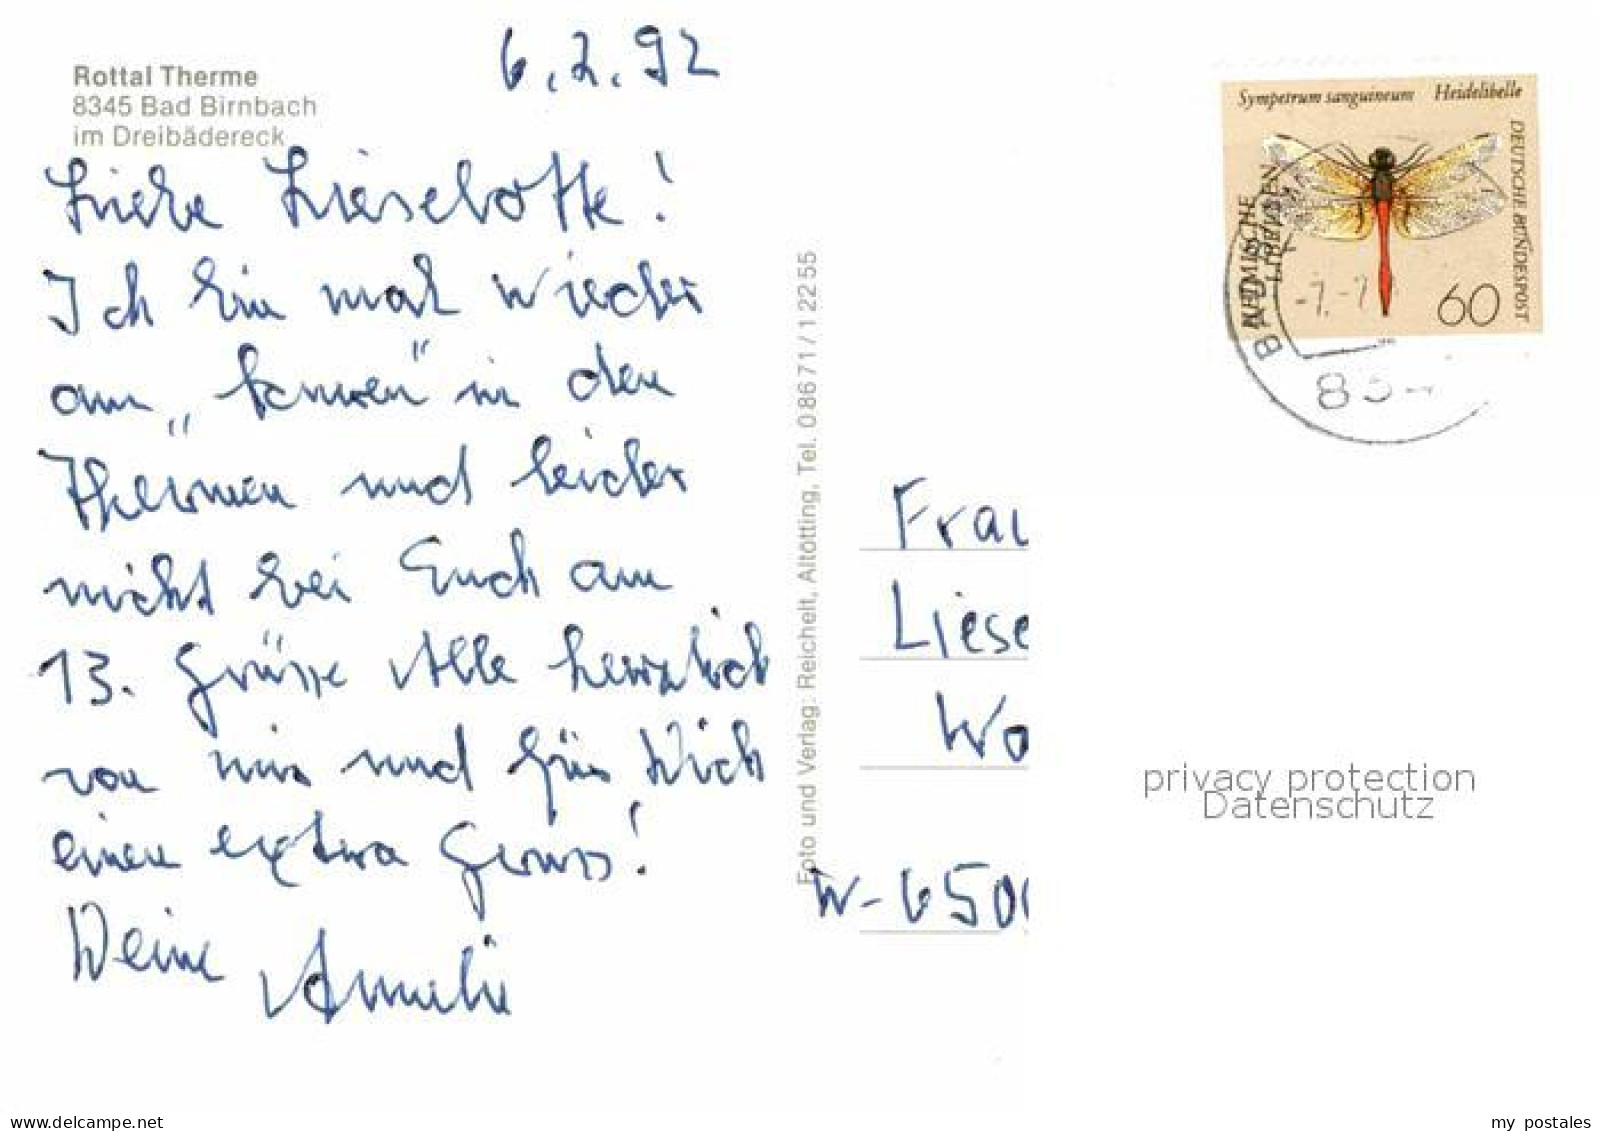 6.2.92
Rottal Therme
8345 Bad Birnbach
im Dreibädereck
Liebe Lieselotte!
Ich bin mal wieder
am „kuren" in den
Thermen und leider
nicht bei Euch am
13. Grüsse Alle herzlich
von mir und für Dich
einen extra Gruss!
Deine Annelie
Foto und Verlag: Reichelt, Altötting, Tel. 08671/12255
Sympetrum sanguineum Heidelibelle
DEUTSCHE BUNDESPOST
HEIMISCHE
LIBELLEN
60
BAD
-7.-2
834
Frau
Liese
Wo
W-6500
privacy protection
Datenschutz
www.delcampe.net
my_postales